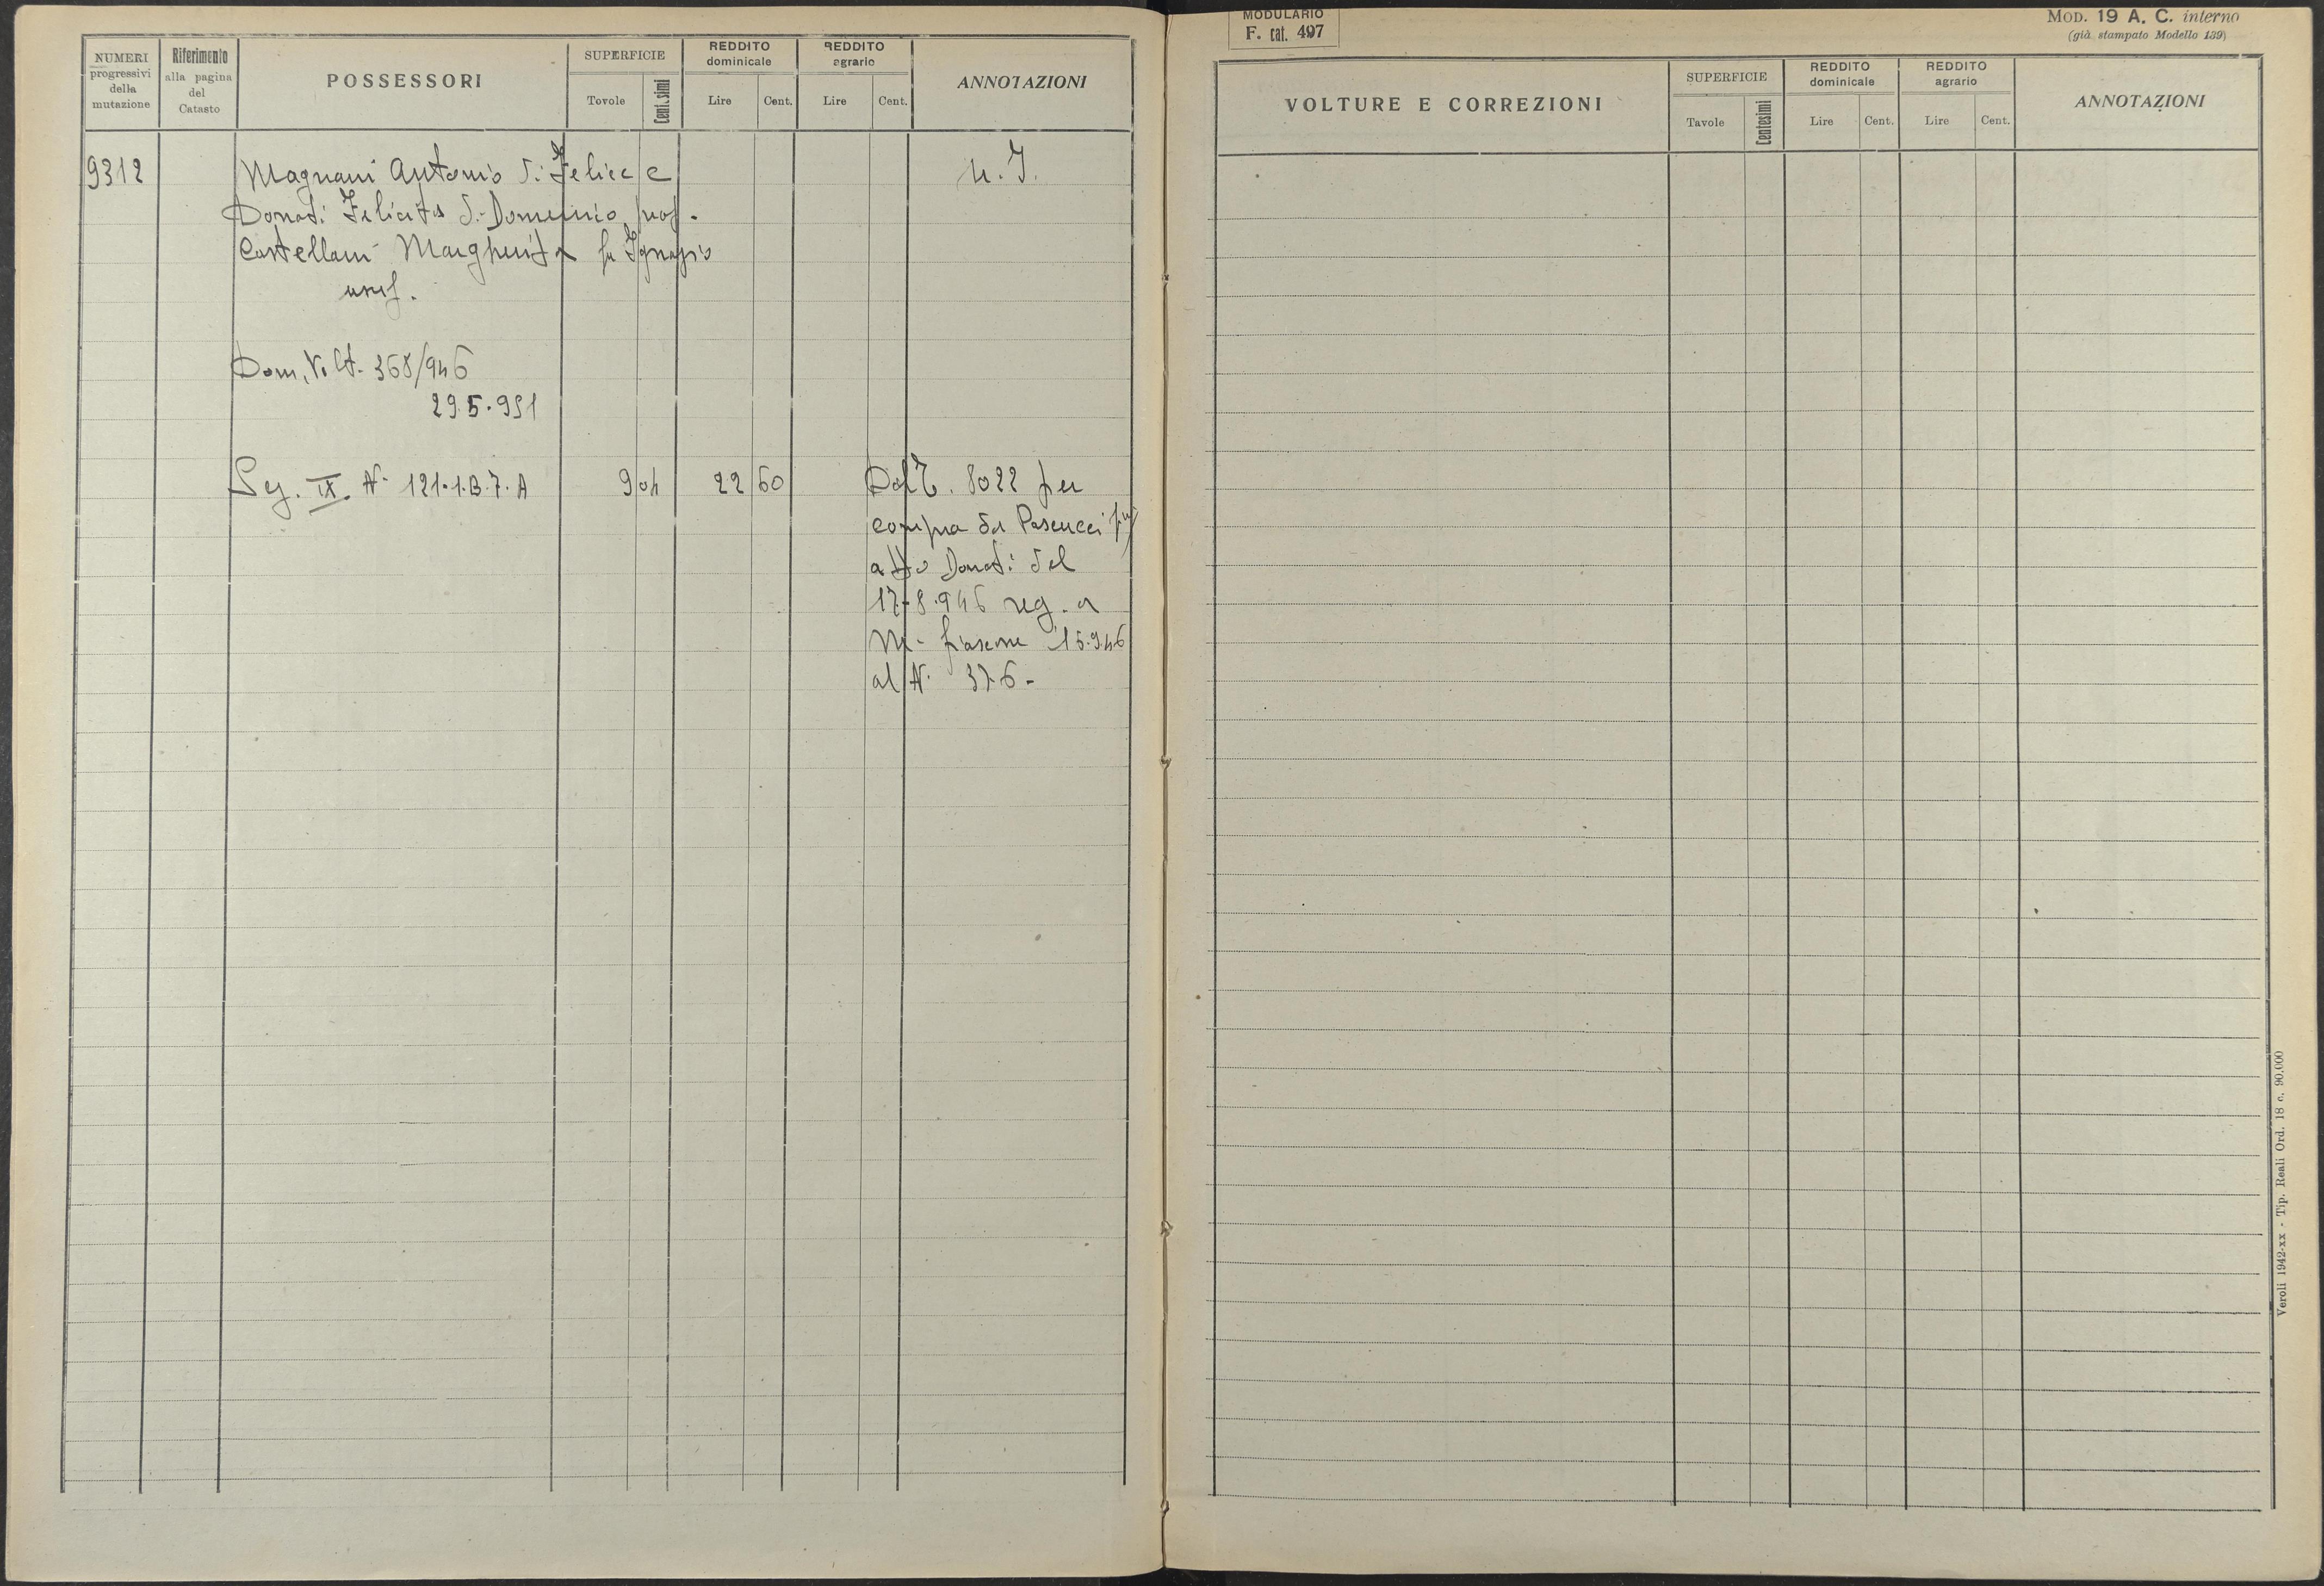 NUMERI progressivi della mutazione
Riferimento alla pagina del Catasto
POSSESSORI
SUPERFICIE
Tavole
Centesimi
REDDITO dominicale
Lire
Cent.
REDDITO agrario
Lire
Cent.
ANNOTAZIONI
9312
Magnani Antonio di Felice e
n. I.
Donati Felicita di Domenico prop.
Castellani Margherita fu Ignazio
usuf.
Dom. Volt. 368/946
29.5.951
Seg. IX. N. 121.1.B.7.A
9 04
22 60
Dal T. 8022 per
compra da Pascucci per
atto Donati del
17-8-946 reg. a
M. fiascone 1 5.9.46
al N. 376-
MODULARIO
F. cat. 497
MOD. 19 A. C. interno
(già stampato Modello 139)
VOLTURE E CORREZIONI
SUPERFICIE
Tavole
Centesimi
REDDITO dominicale
Lire
Cent.
REDDITO agrario
Lire
Cent.
ANNOTAZIONI
Veroli 1942-XX - Tip. Reali Ord. 18 c. 90.000